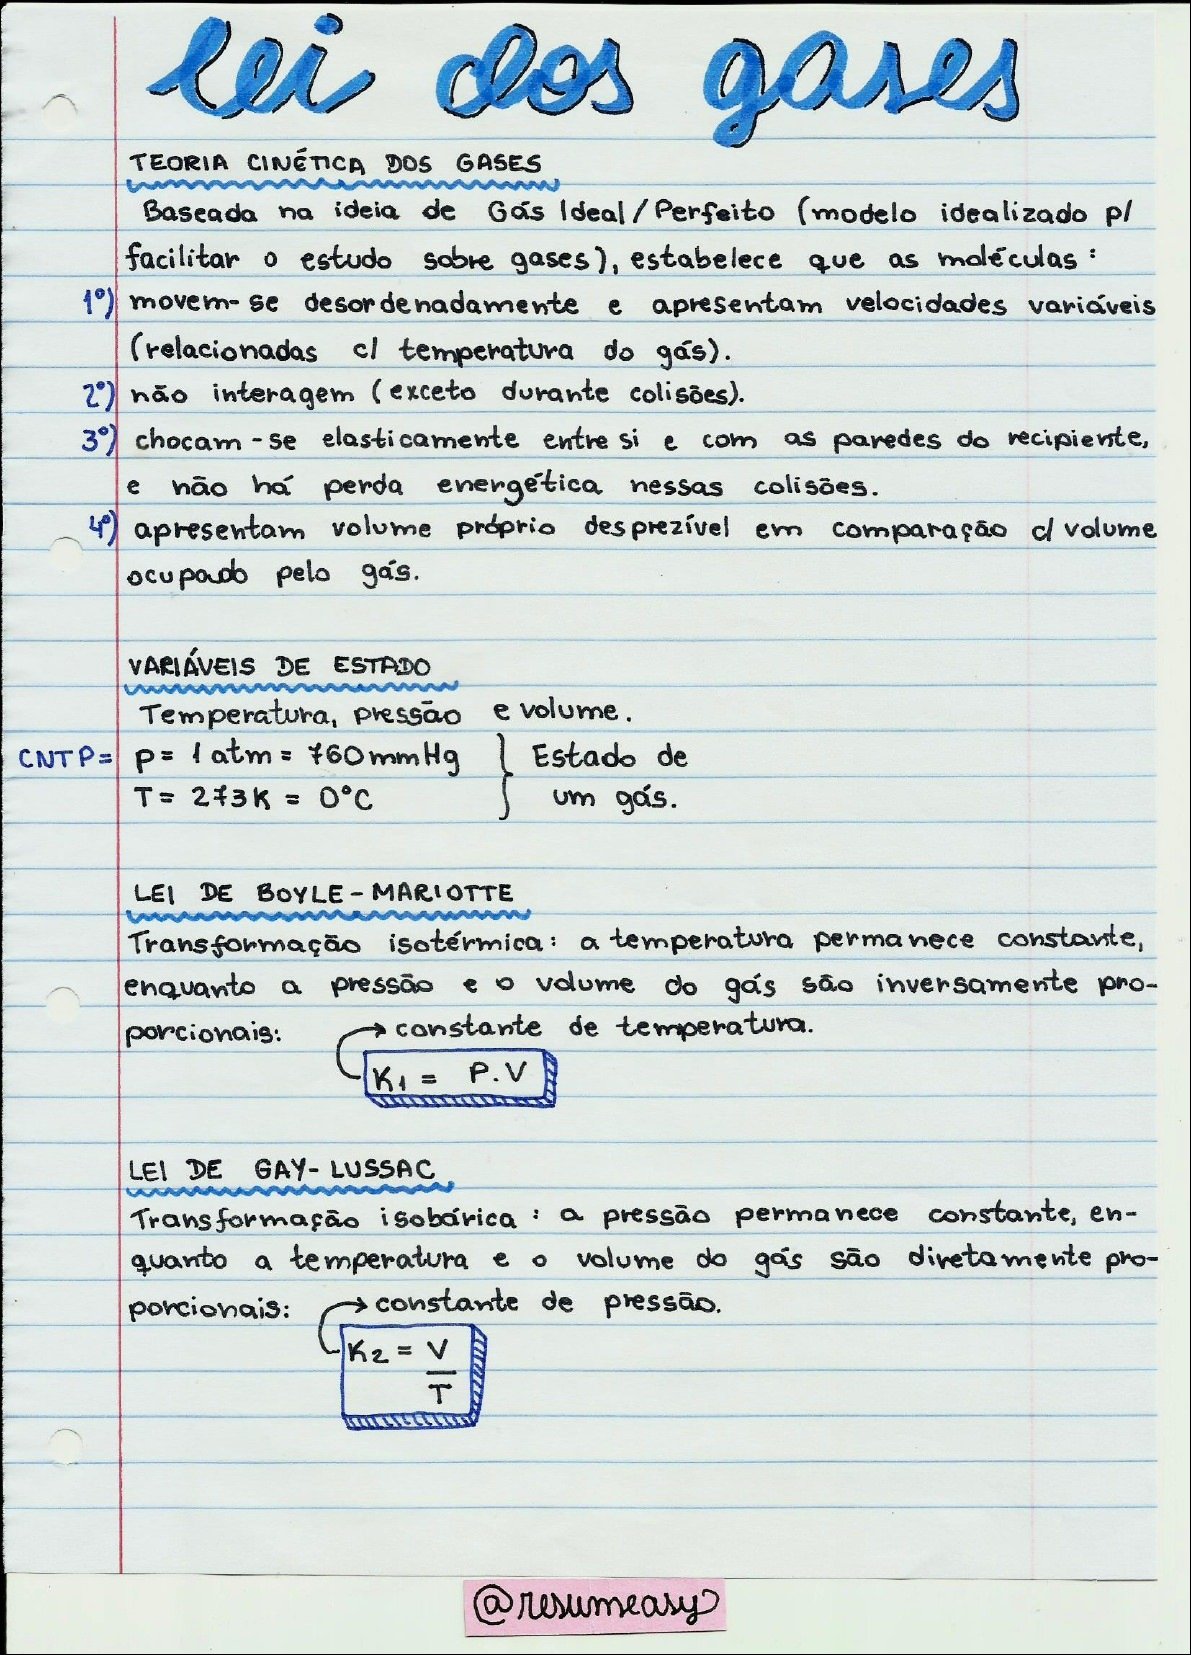 lei dos gases
TEORIA CINÉTICA DOS GASES
Baseada na ideia de Gás Ideal/Perfeito (modelo idealizado p/
facilitar o estudo sobre gases), estabelece que as moléculas:
1º) movem-se desordenadamente e apresentam velocidades variáveis
(relacionadas c/ temperatura do gás).
2º) não interagem (exceto durante colisões).
3º) chocam-se elasticamente entre si e com as paredes do recipiente,
e não há perda energética nessas colisões.
4º) apresentam volume próprio desprezível em comparação c/ volume
ocupado pelo gás.
VARIÁVEIS DE ESTADO
Temperatura, pressão e volume.
CNTP= P= 1 atm = 760mmHg } Estado de
T= 273K = 0°C um gás.
LEI DE BOYLE-MARIOTTE
Transformação isotérmica: a temperatura permanece constante,
enquanto a pressão e o volume do gás são inversamente pro-
porcionais: → constante de temperatura.
K1 = P.V
LEI DE GAY-LUSSAC
Transformação isobárica: a pressão permanece constante, en-
quanto a temperatura e o volume do gás são diretamente pro-
porcionais: → constante de pressão.
K2 = V
T
@resumeasy